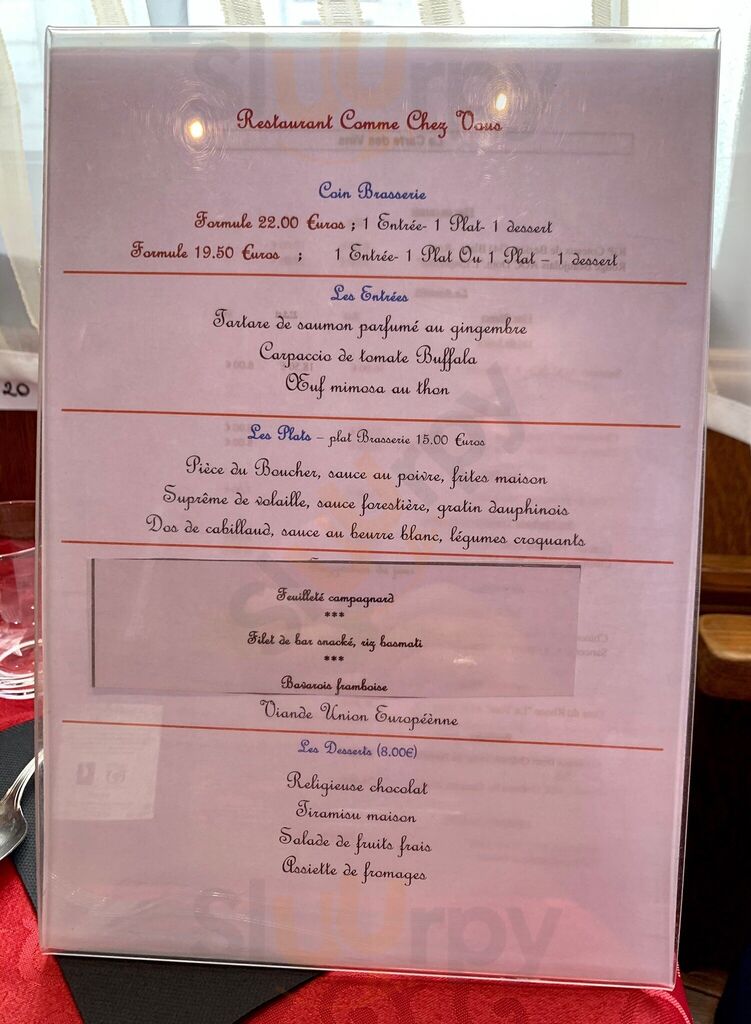 Restaurant Comme Chez Vous
Coin Brasserie
Formule 22.00 Euros ; 1 Entrée- 1 Plat- 1 dessert
Formule 19.50 Euros ; 1 Entrée- 1 Plat Ou 1 Plat – 1 dessert
Les Entrées
Tartare de saumon parfumé au gingembre
Carpaccio de tomate Buffala
Œuf mimosa au thon
20
Les Plats – plat Brasserie 15.00 Euros
Pièce du Boucher, sauce au poivre, frites maison
Suprême de volaille, sauce forestière, gratin dauphinois
Dos de cabillaud, sauce au beurre blanc, légumes croquants
Feuilleté campagnard
***
Filet de bar snacké, riz basmati
***
Bavarois framboise
Viande Union Européènne
Les Desserts (8.00€)
Religieuse chocolat
Tiramisu maison
Salade de fruits frais
Assiette de fromages
sluurpy
sluurpy
sluurpy